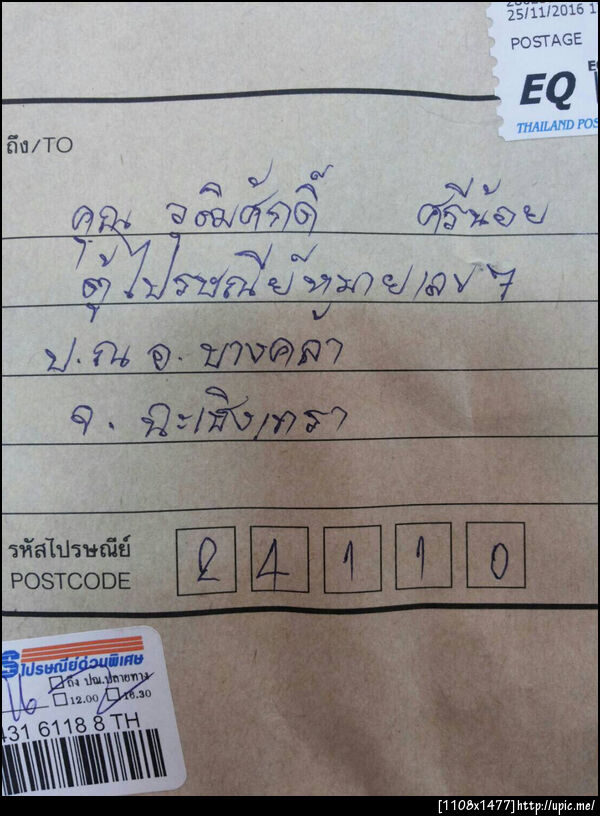 25/11/2016 1
POSTAGE
EQ
THAILAND POS
ถึง/TO
คุณ วุฒิศักดิ์ ศรีน้อย
ตู้ไปรษณีย์หมายเลข 7
ป.ณ อ. บางคล้า
จ. ฉะเชิงเทรา
รหัสไปรษณีย์
POSTCODE
2 4 1 1 0
ไปรษณีย์ด่วนพิเศษ
ถึง ปณ.ปลายทาง
12.00 16.30
431 6118 8 TH
[1108x1477]http://upic.me/